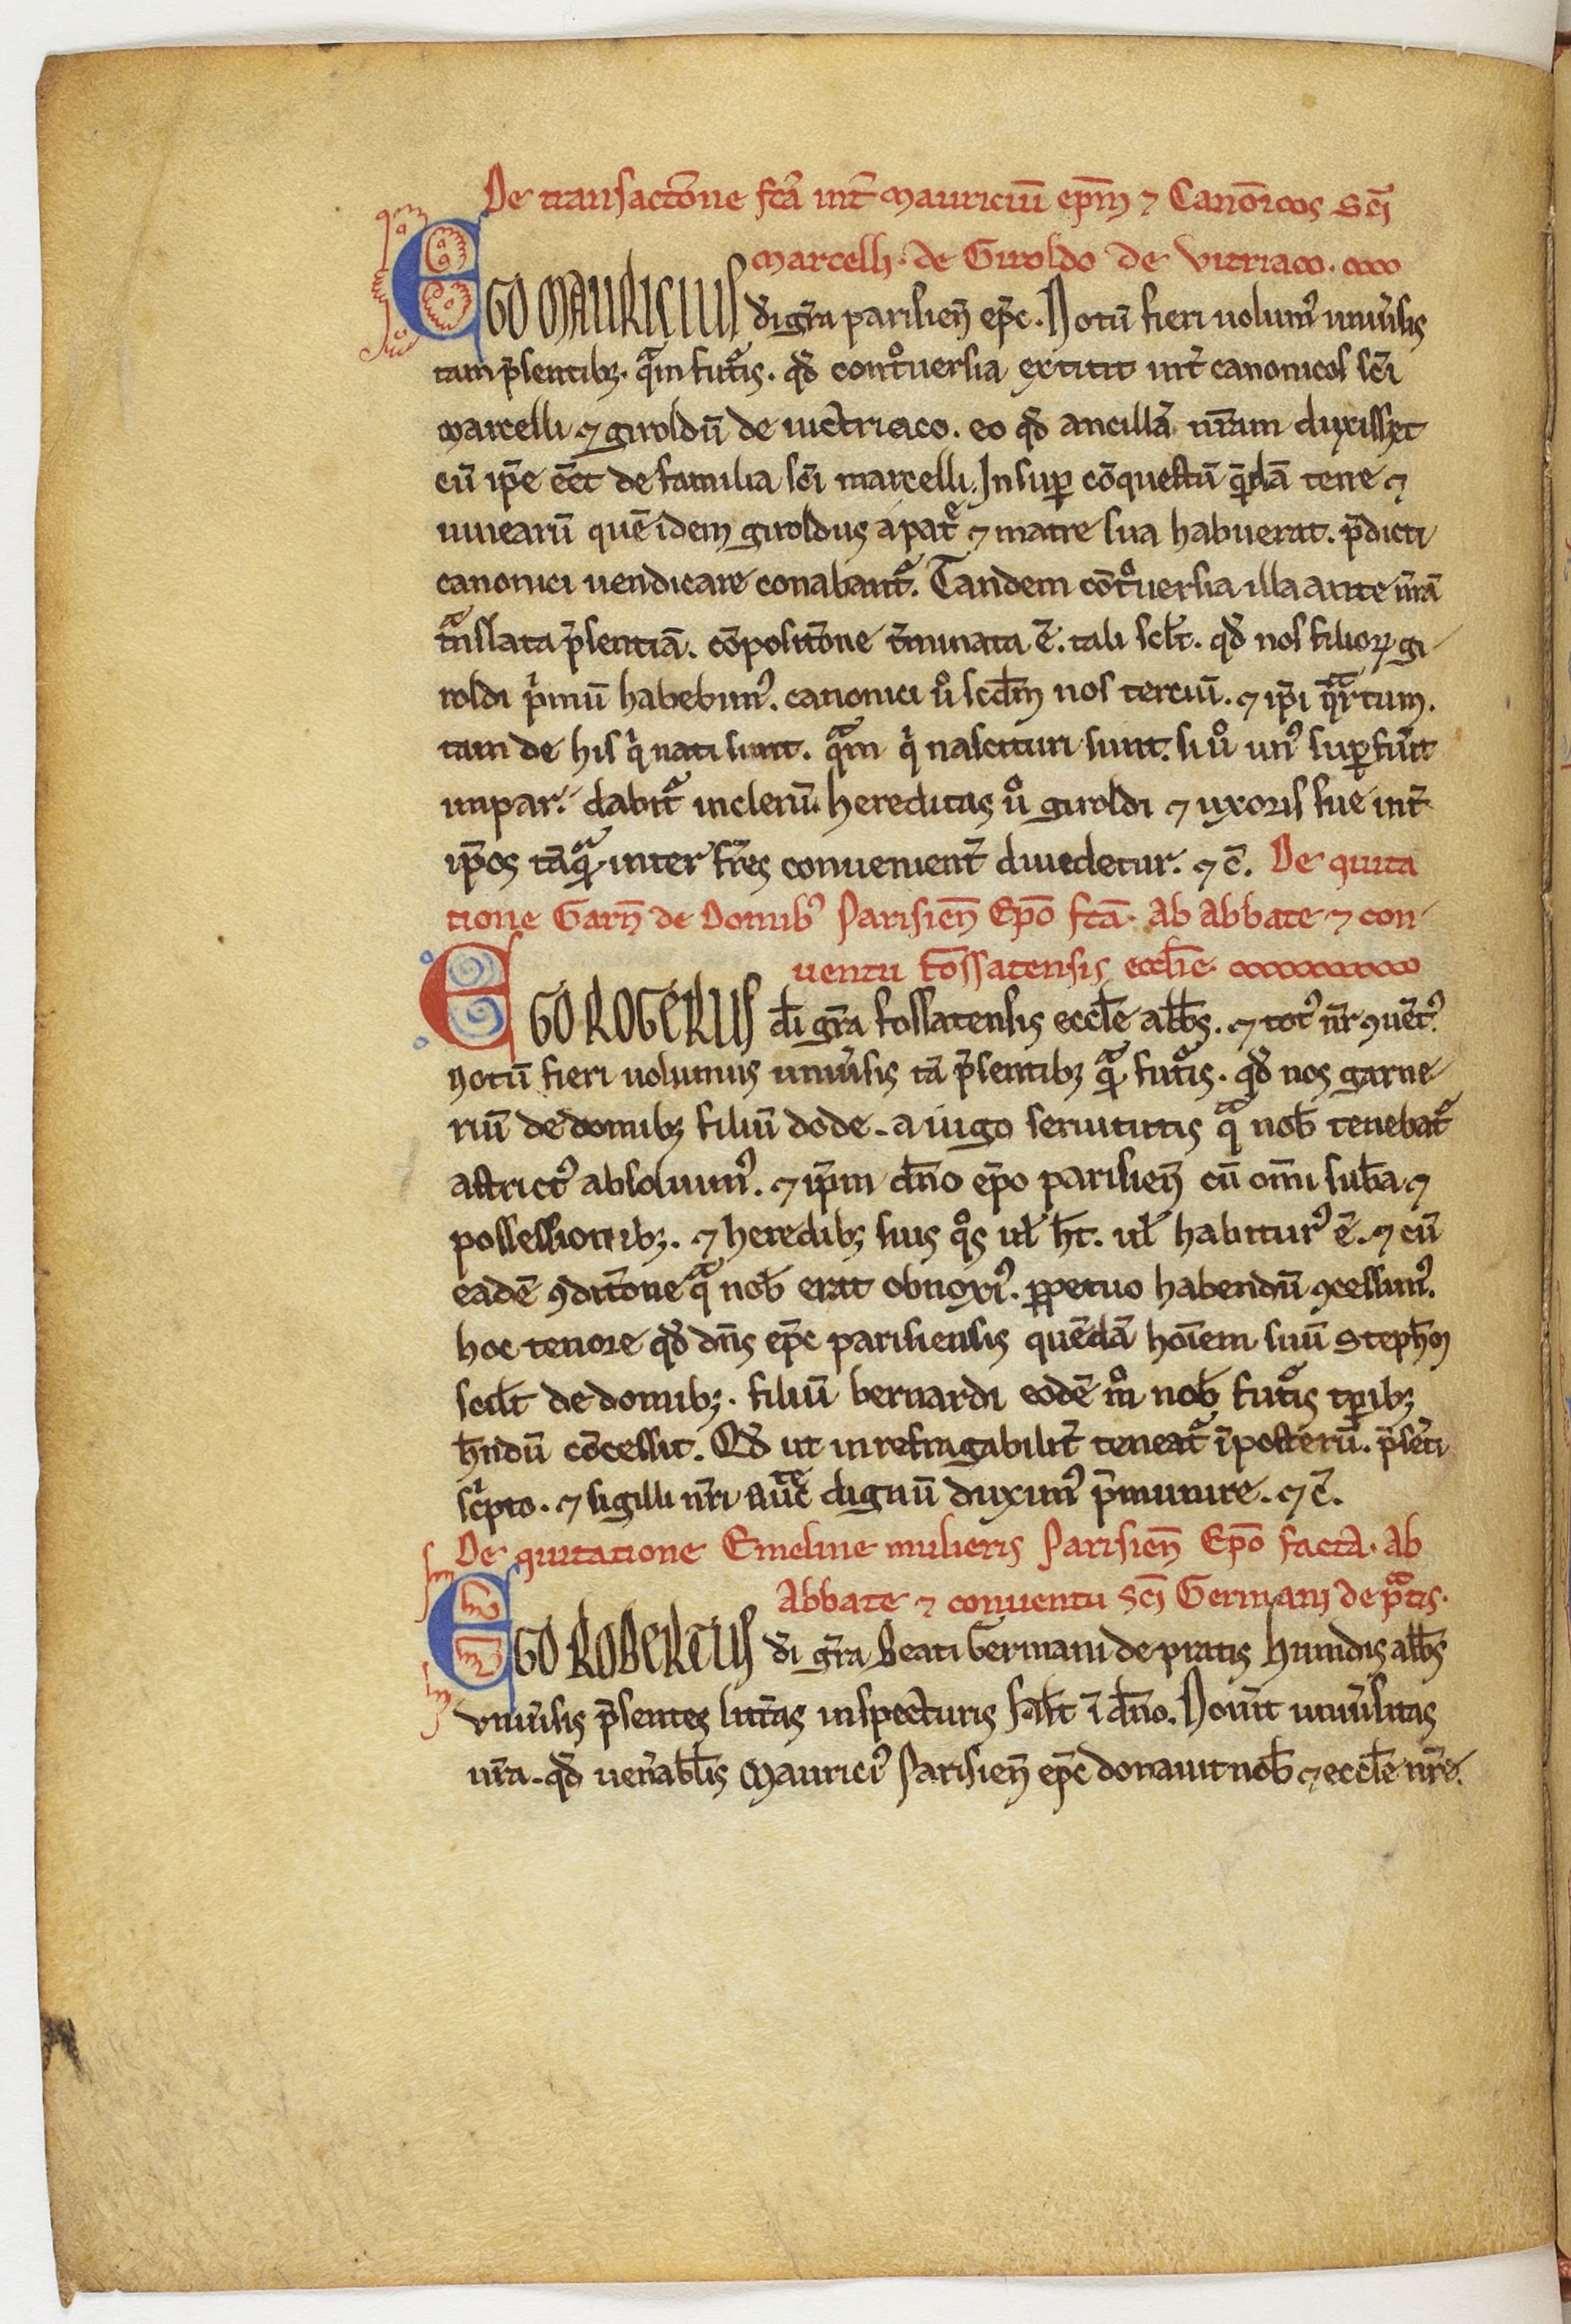 De transactõne fcã int̃ mauriciũ ep̃m ⁊ Canõicos Sc̃i
marcelli. de Giroldo de Vitriaco.
EGO MAURICIUS d̃i gr̃a parisieñ ep̃c. Notũ fieri uolum᷒ uniu̾sis
tam p̃sentib⁊. qᷓm futᷣis. qđ cont͛ouersia extitit int̃ canonicos sc̃i
marcelli ⁊ giroldũ de uictriaco. eo qđ ancillã nr̃am duxisset
cũ ip̃e eẽt de familia sc̃i marcelli. Insuꝑ cõquestũ q̃rdã terre ⁊
uinearũ quẽ idem giroldus a patᷣ ⁊ matre sua habuerat. p̃dicti
canonici uendicare conabantᷣ. Tandem cõtᷣouersia illa ante nr̃ã
tᷓnslata p̃sentiã. cõpositõne t̃minata ẽ. tali scil̃t. qđ nos filioꝝ gi
roldi pͥmũ habebim᷒. canonici uͦ scd̃m nos terciũ. ⁊ ip̃i qᷓrtum.
tam de his qͥ nati sunt. qᷓm qͥ nascituri sunt. si uͦ un᷒ suꝑfũit
impar. dabitᷣ in clerũ. hereditas uͦ giroldi ⁊ uxoris sue int̃
ip̃os tãqᷓ inter fr̃es conuenient̃ diuidetur. ⁊ c̃. De quita
tione Garñ de Domib᷒ Parisieñ Ep̃o fcã. Ab Abbate ⁊ con
uentu fossatensis eccl̃ie.
EGO ROGERIUS d̃i gr̃a fossatensis eccl̃e abb̃s. ⁊ tot᷒ nr̃ ꝯuẽt᷒.
notũ fieri uolumus uniu̾sis tã p̃sentib⁊ qᷓ futᷣis. qđ nos garne
riũ de domib⁊ filiũ dode. a iugo seruitutis qᷓ nob̃ tenebatᷣ
astrict᷒ absoluim᷒. ⁊ ip̃m dñ̃o ep̃o parisieñ cũ om̃i sub̃a ⁊
possessionib⁊. ⁊ heredib⁊ suis qͦs ul̃ h̃t. ul̃ habitur᷒ ẽ. ⁊ cũ
eadẽ ꝯditõne qᷓ nob̃ erat obnoxi᷒. ꝑpetuo habendũ ꝯcessim᷒.
hoc tenore qđ dñs ep̃c parisiensis quẽdã hoĩem suũ Steph̃m
scil̃t de domib⁊. filiũ bernardi eodẽ mͦ nob̃ futᷣis tꝑib⁊
h̃ndũ cõcessit. Qđ ut inrefragabilit̃ teneatᷣ ĩposterũ. p̃sẽti
scͥpto. ⁊ sigilli nr̃i auc̃te dignũ duxim᷒ p̃munire. ⁊ c̃.
De quitatione Emeline mulieris Parisieñ Ep̃o facta. Ab
Abbate ⁊ conuentu Sc̃i Germani de pᷓtis.
EGO ROBERTUS d̃i gr̃a Beati Germani de pratis humilis abb̃s
vniu̾sis p̃sentes litt̃as inspecturis sal̃t ĩ dño. Nou̾it uniu̾sitas
ur̃a. qđ uen̾abil̃is Maurici᷒ Parisieñ ep̃c donauit nob̃ ⁊ eccl̃e nr̃e.